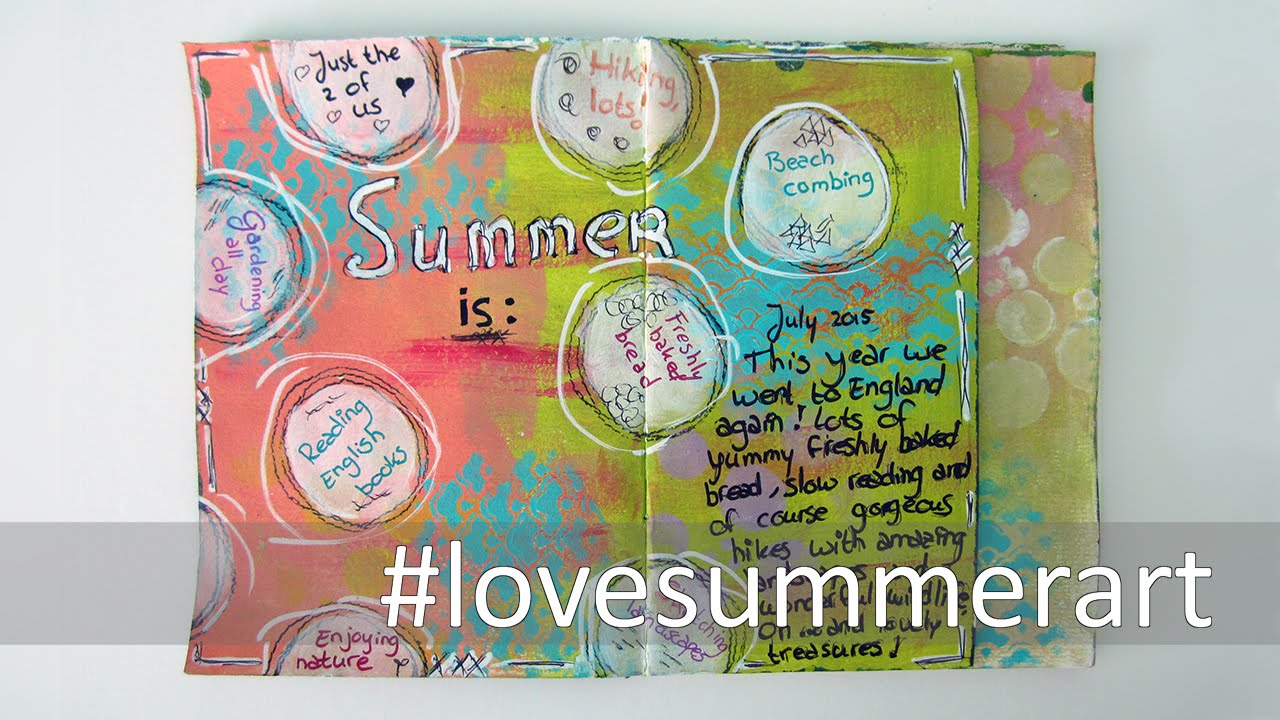 Just the
2 of
us
Hiking,
lots!
Beach
combing
Gardening
all day
Summer
is:
Freshly
baked
bread
Reading
English
books
Enjoying
nature
landscapes
July 2015
This year we
went to England
again! Lots of
yummy freshly baked
bread, slow reading and
of course gorgeous
hikes with amazing
wonderful wildlife
treasures!
#lovesummerart